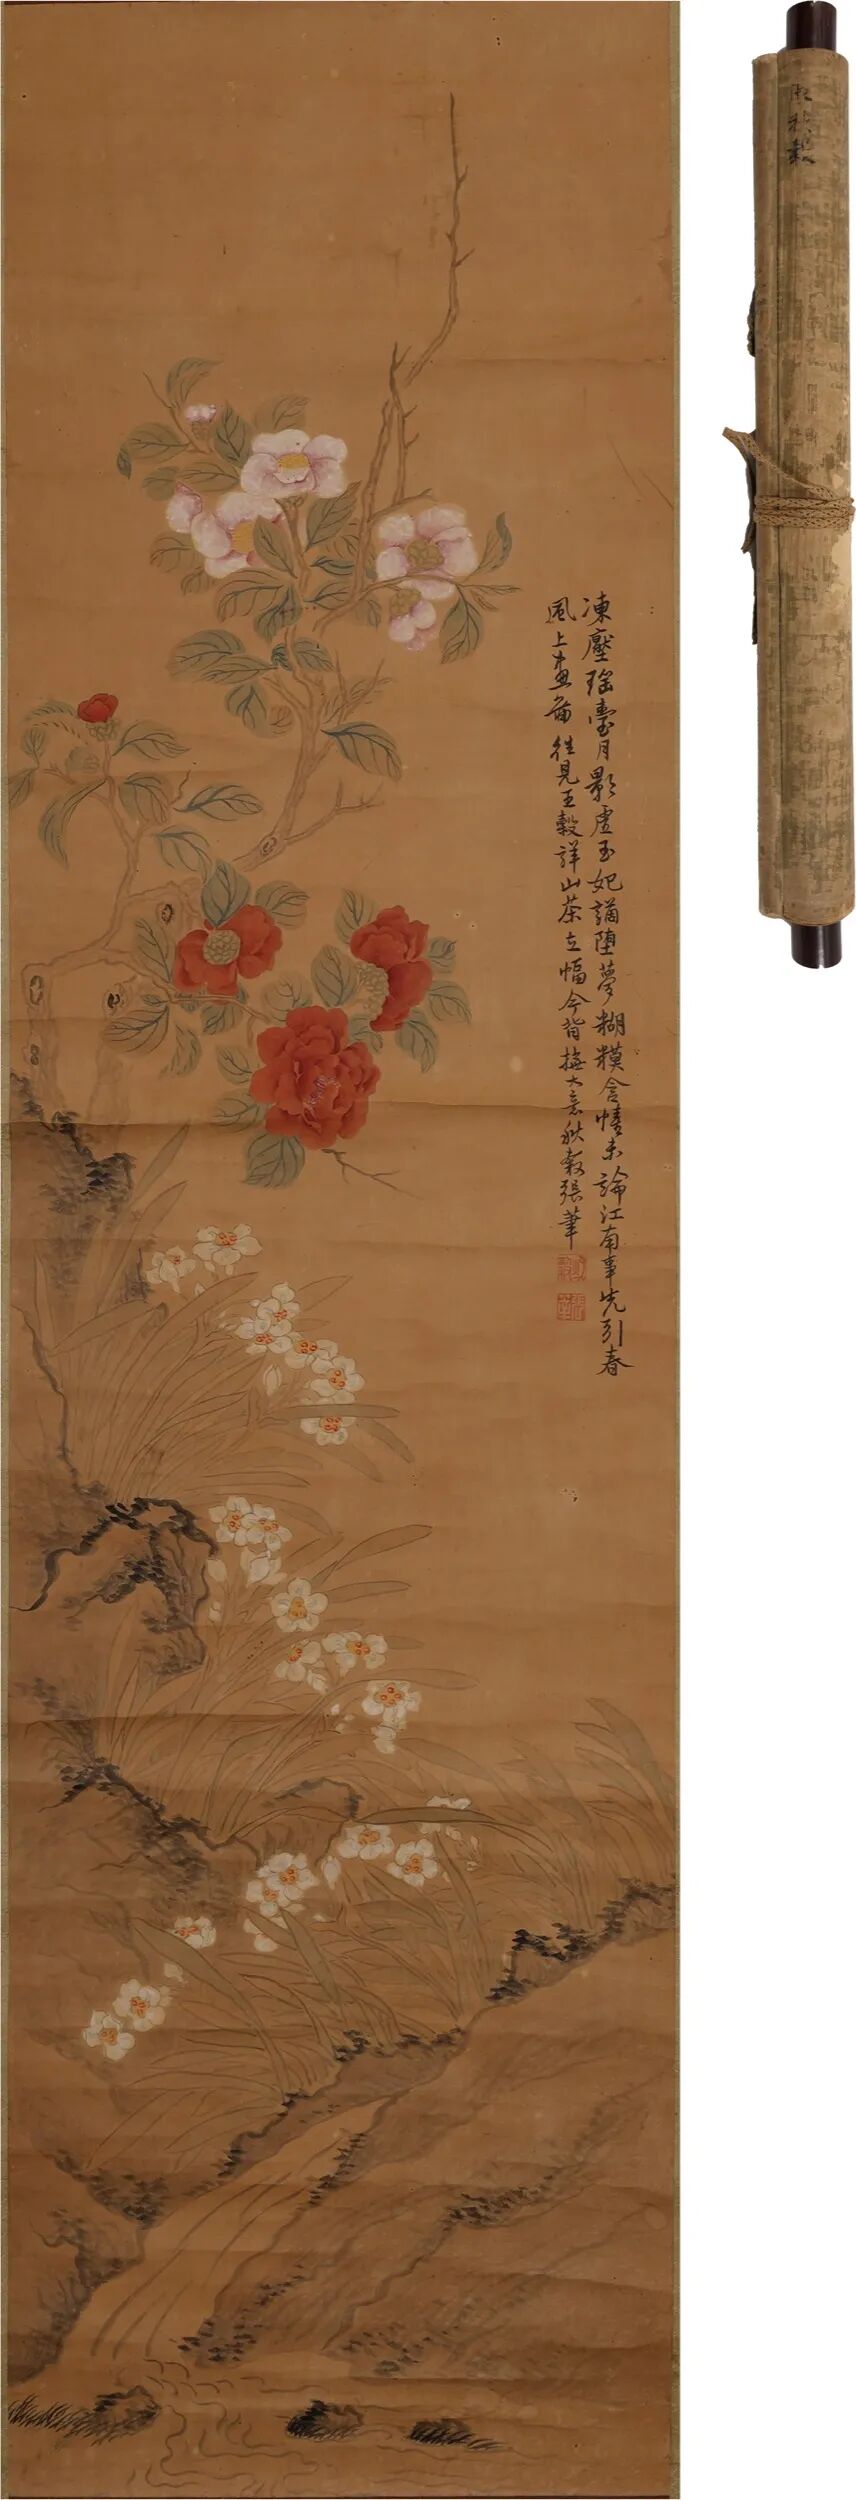 凍壓瑤臺月影虛玉妃謫墮夢糊糢含情未論江南事先引春
風上畫圖往見王穀詳山茶立幅今背橅大意秋穀張莑